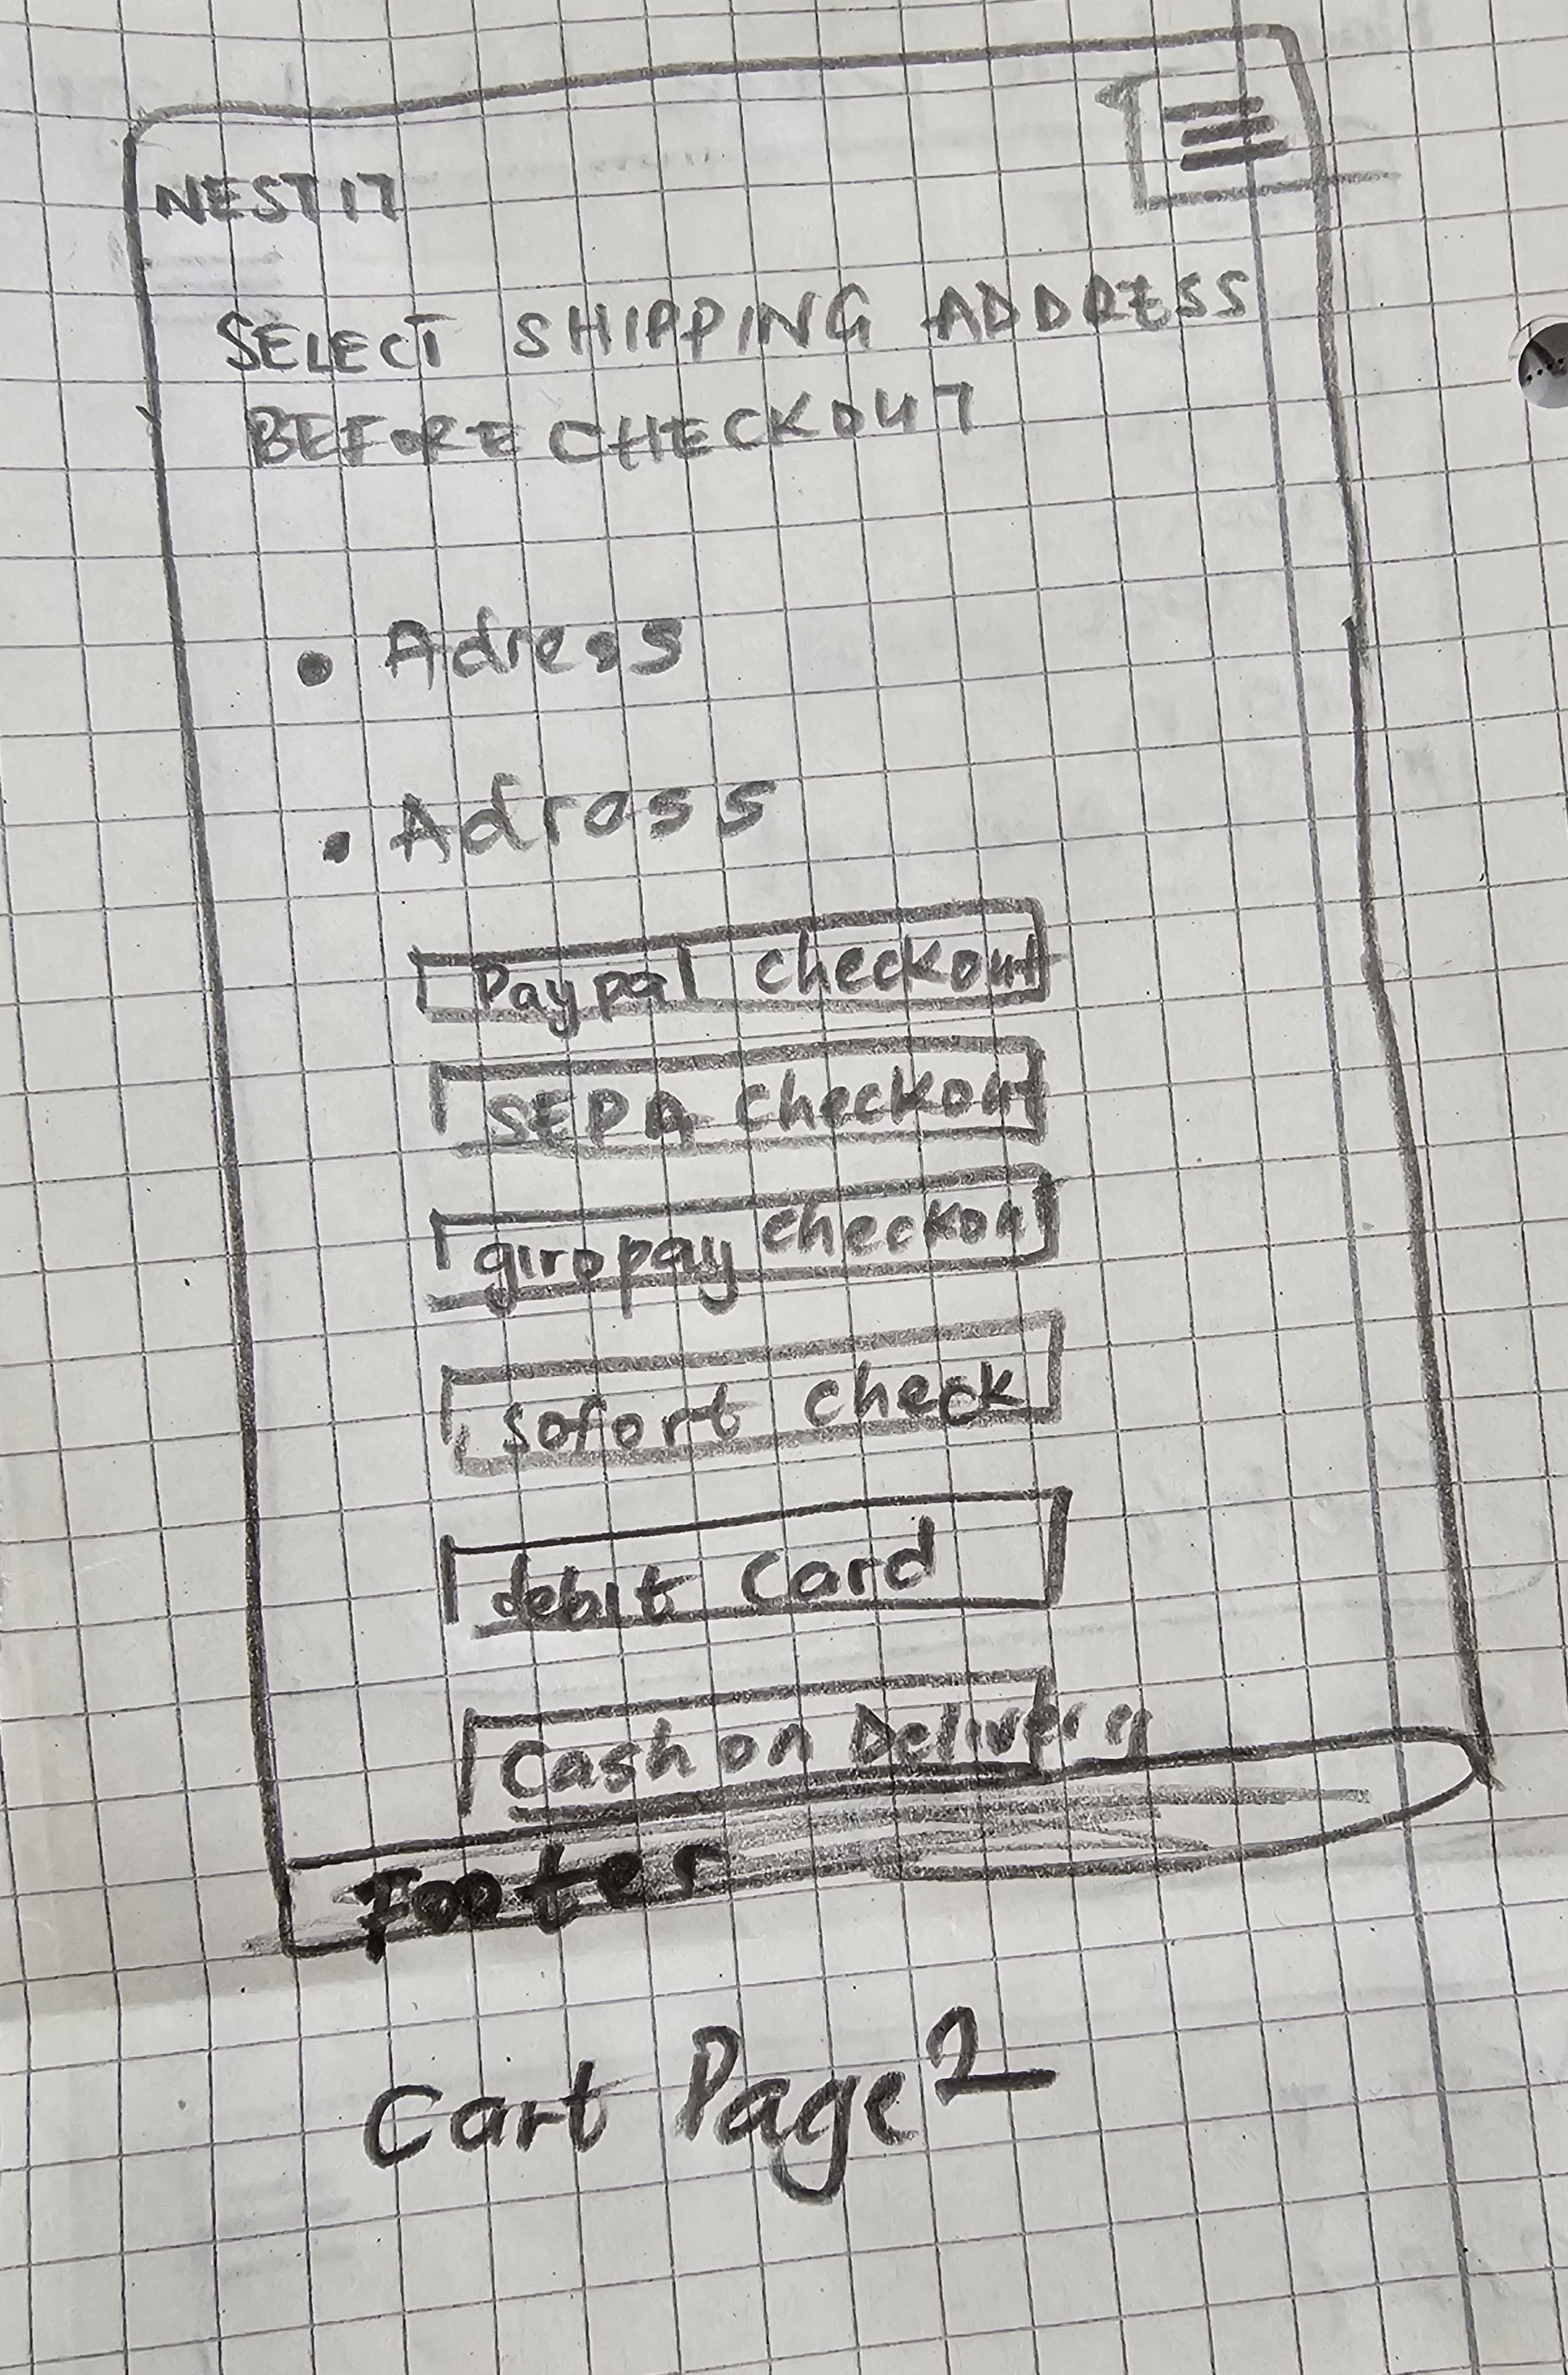 NESTIT
SELECT SHIPPING ADDRESS
BEFORE CHECKOUT
• Adress
• Adross
Paypal checkout
SEPA checkout
giropay checkout
sofort check
debit card
Cash on Delivery
Footer
Cart Page 2